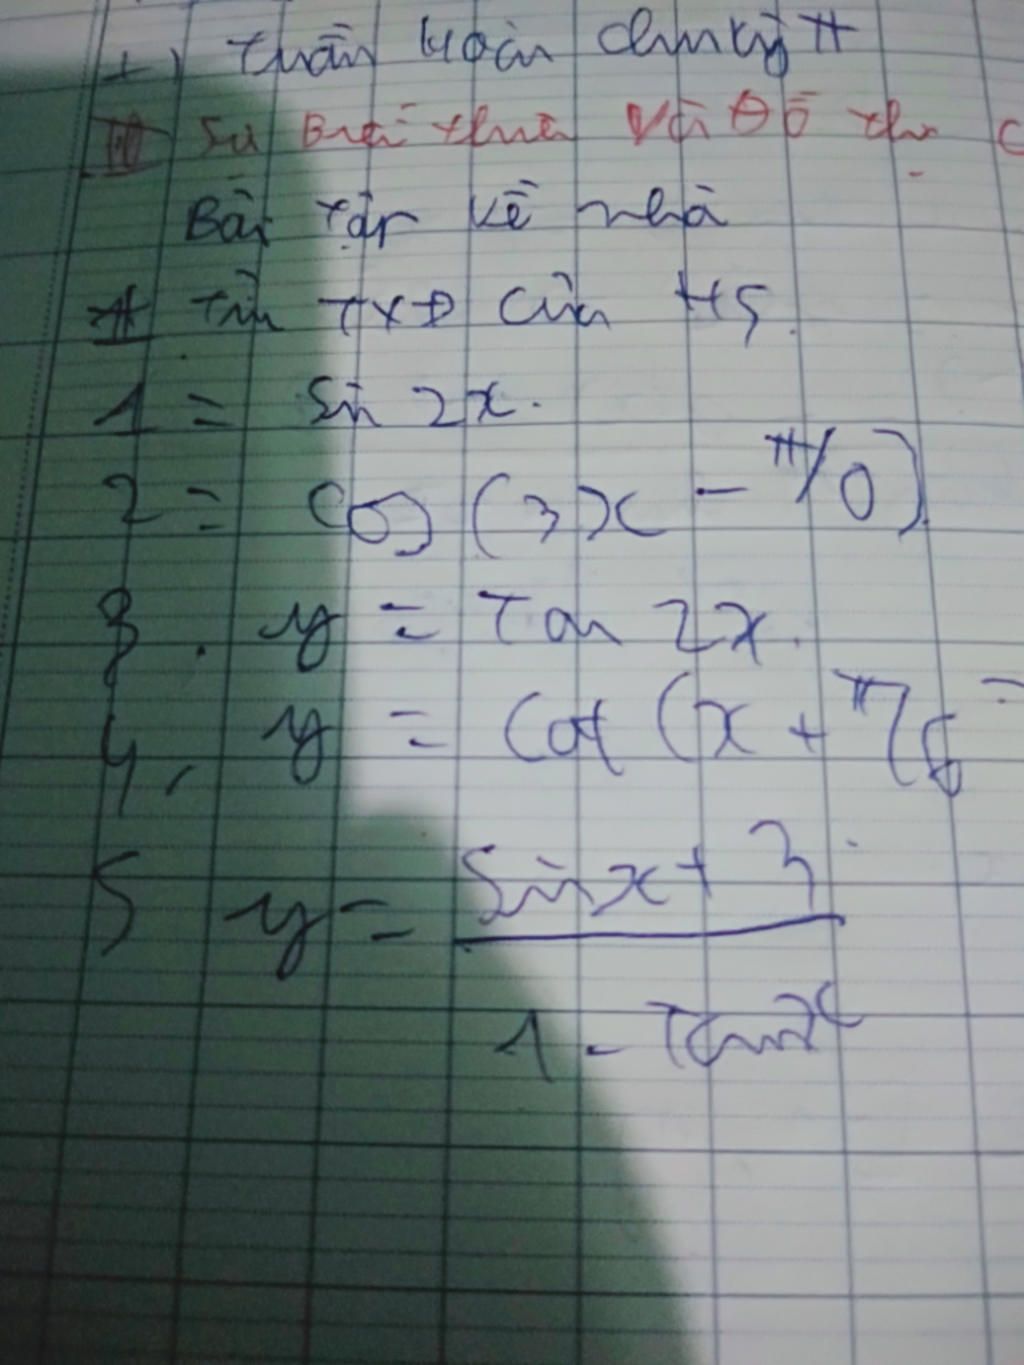 +) tuần hoàn chu kỳ π
III Sự Biến thiên Và Đồ thị
Bài tập Về nhà
# Tìm TXĐ của HS.
1 = Sin 2x.
2 = cos (3x - π/0)
3. y = Tan 2x.
4, y = Cot (x + π/6
5 y = Sin x + 3
1 - Tan x